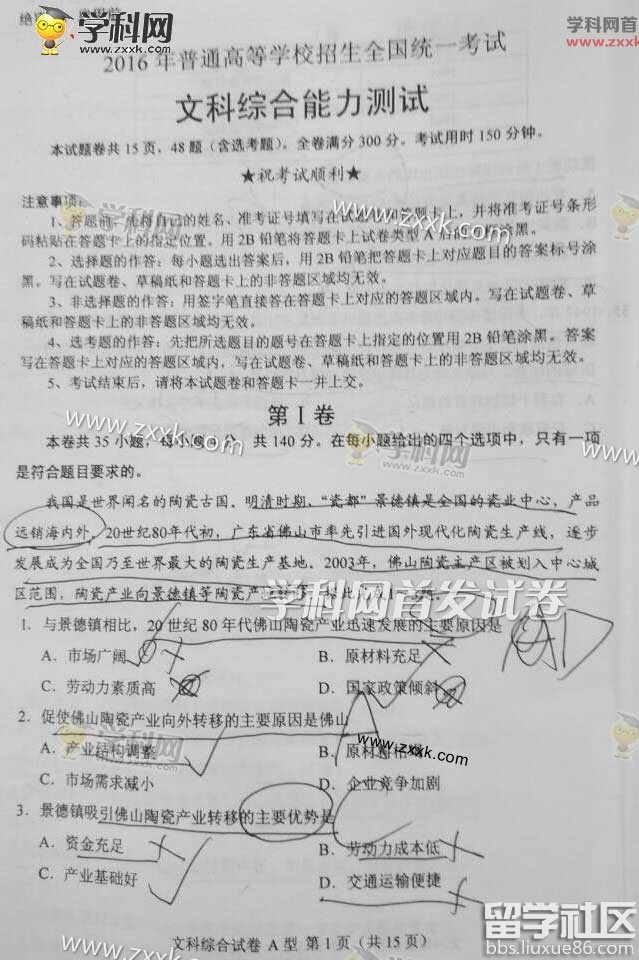 学科网
www.zxxk.com
学科网
www.zxxk.com
2016年普通高等学校招生全国统一考试
文科综合能力测试
本试题卷共15页，48题（含选考题）。全卷满分300分。考试用时150分钟。
★祝考试顺利★
注意事项：
1、答题前，先将自己的姓名、准考证号填写在试题卷和答题卡上，并将准考证号条形
码粘贴在答题卡上的指定位置。用2B铅笔将答题卡上试卷类型A后的方框涂黑。
2、选择题的作答：每小题选出答案后，用2B铅笔把答题卡上对应题目的答案标号涂
黑。写在试题卷、草稿纸和答题卡上的非答题区域均无效。
3、非选择题的作答：用签字笔直接答在答题卡上对应的答题区域内。写在试题卷、草
稿纸和答题卡上的非答题区域均无效。
4、选考题的作答：先把所选题目的题号在答题卡上指定的位置用2B铅笔涂黑。答案
写在答题卡上对应的答题区域内，写在试题卷、草稿纸和答题卡上的非答题区域均无效。
5、考试结束后，请将本试题卷和答题卡一并上交。
第Ⅰ卷
本卷共35小题，每小题 分，共140分。在每小题给出的四个选项中，只有一项
是符合题目要求的。
我国是世界闻名的陶瓷古国。明清时期，“瓷都”景德镇是全国的瓷业中心，产品
远销海内外。20世纪80年代初，广东省佛山市率先引进国外现代化陶瓷生产线，逐步
发展成为全国乃至世界最大的陶瓷生产基地。2003年，佛山陶瓷主产区被划入中心城
区范围，陶瓷产业向景德镇等陶瓷产地转移。据此完成1～3题。
学科网首发试卷
1．与景德镇相比，20世纪80年代佛山陶瓷产业迅速发展的主要原因是
A．市场广阔 B．原材料充足
C．劳动力素质高 D．国家政策倾斜
2．促使佛山陶瓷产业向外转移的主要原因是佛山
A．产业结构调整 B．原材料枯竭
C．市场需求减小 D．企业竞争加剧
3．景德镇吸引佛山陶瓷产业转移的主要优势是
A．资金充足 B．劳动力成本低
C．产业基础好 D．交通运输便捷
文科综合试卷 A型 第1页（共15页）
www.zxxk.com
留学社区
bbs.liuxue86.com